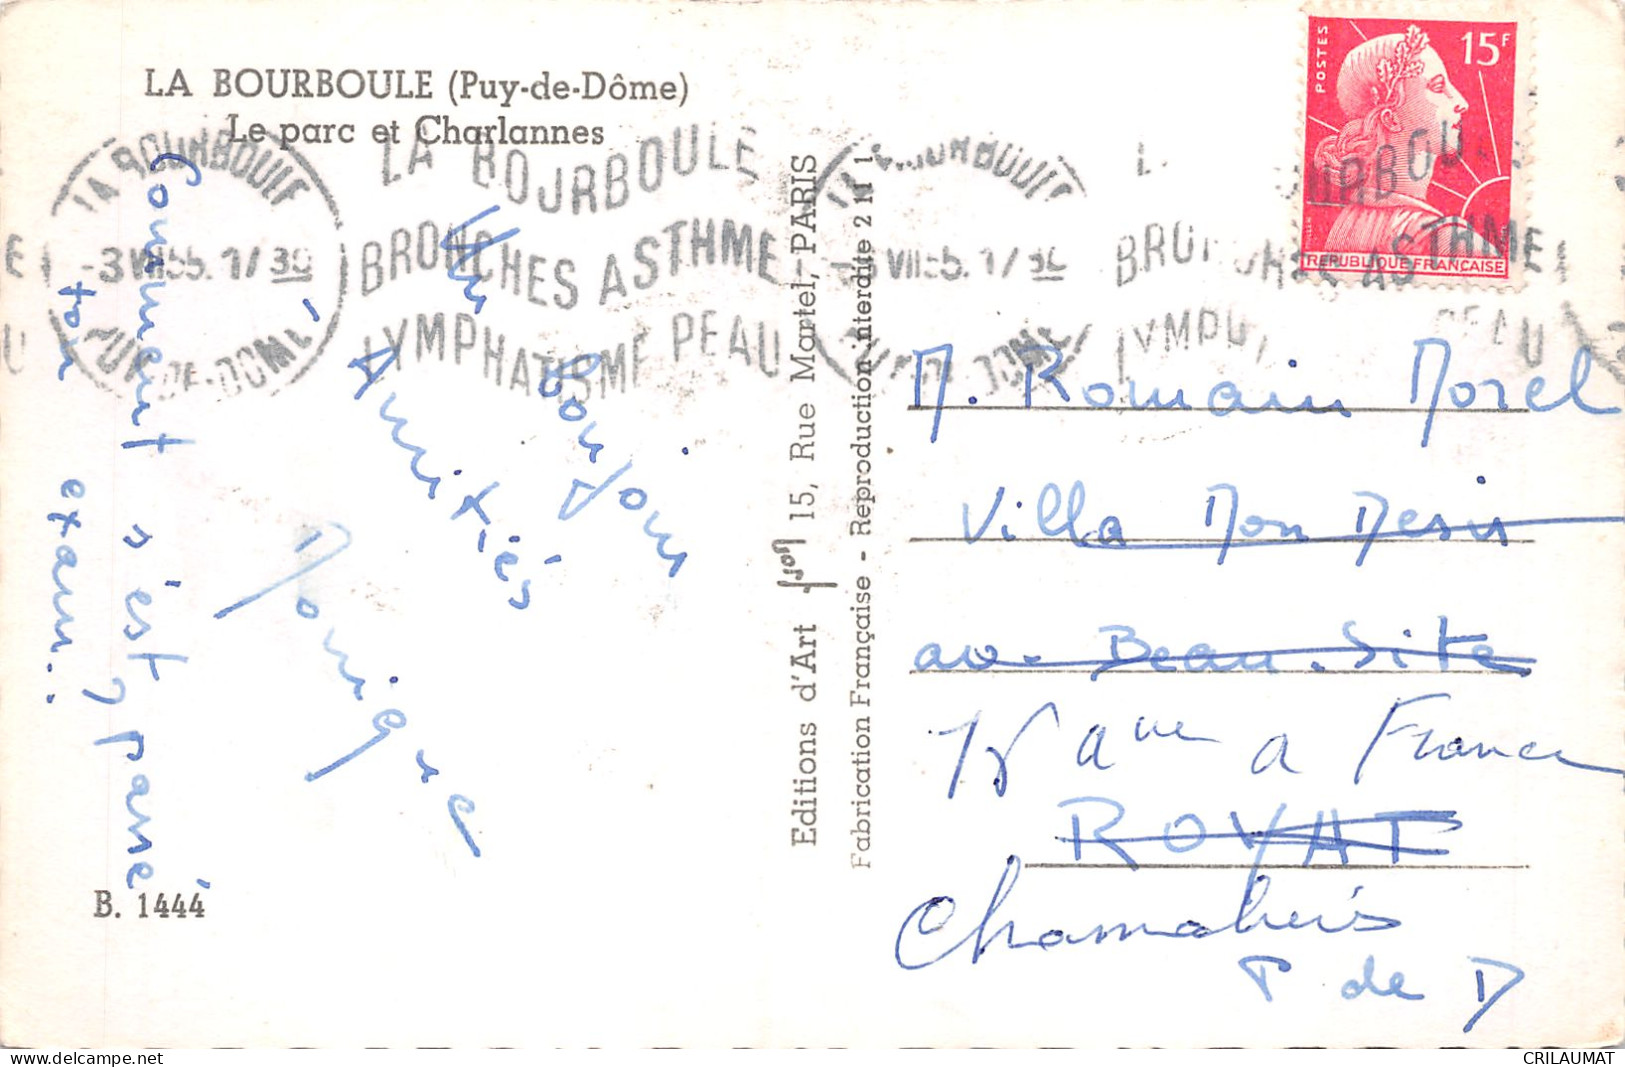 LA BOURBOULE (Puy-de-Dôme)
Le parc et Charlannes
LA BOURBOULE
-3 VII 55. 17/30
PUY-DE-DOME
LA BOURBOULE
BRONCHES ASTHME
LYMPHATISME PEAU
POSTES
15F
REPUBLIQUE FRANÇAISE
Un bonjour
Amitiés
Monique
Comment s'est, passé
ton exam..
B. 1444
Editions d'Art Yvon 15, Rue Martel, PARIS
Fabrication Française - Reproduction interdite 2 M 1
M. Romain Morel
Villa Mon Desir
av. Beau-Site
15 Aue A France
ROYAT
Chamalieris
P de D
www.delcampe.net
CRILAUMAT